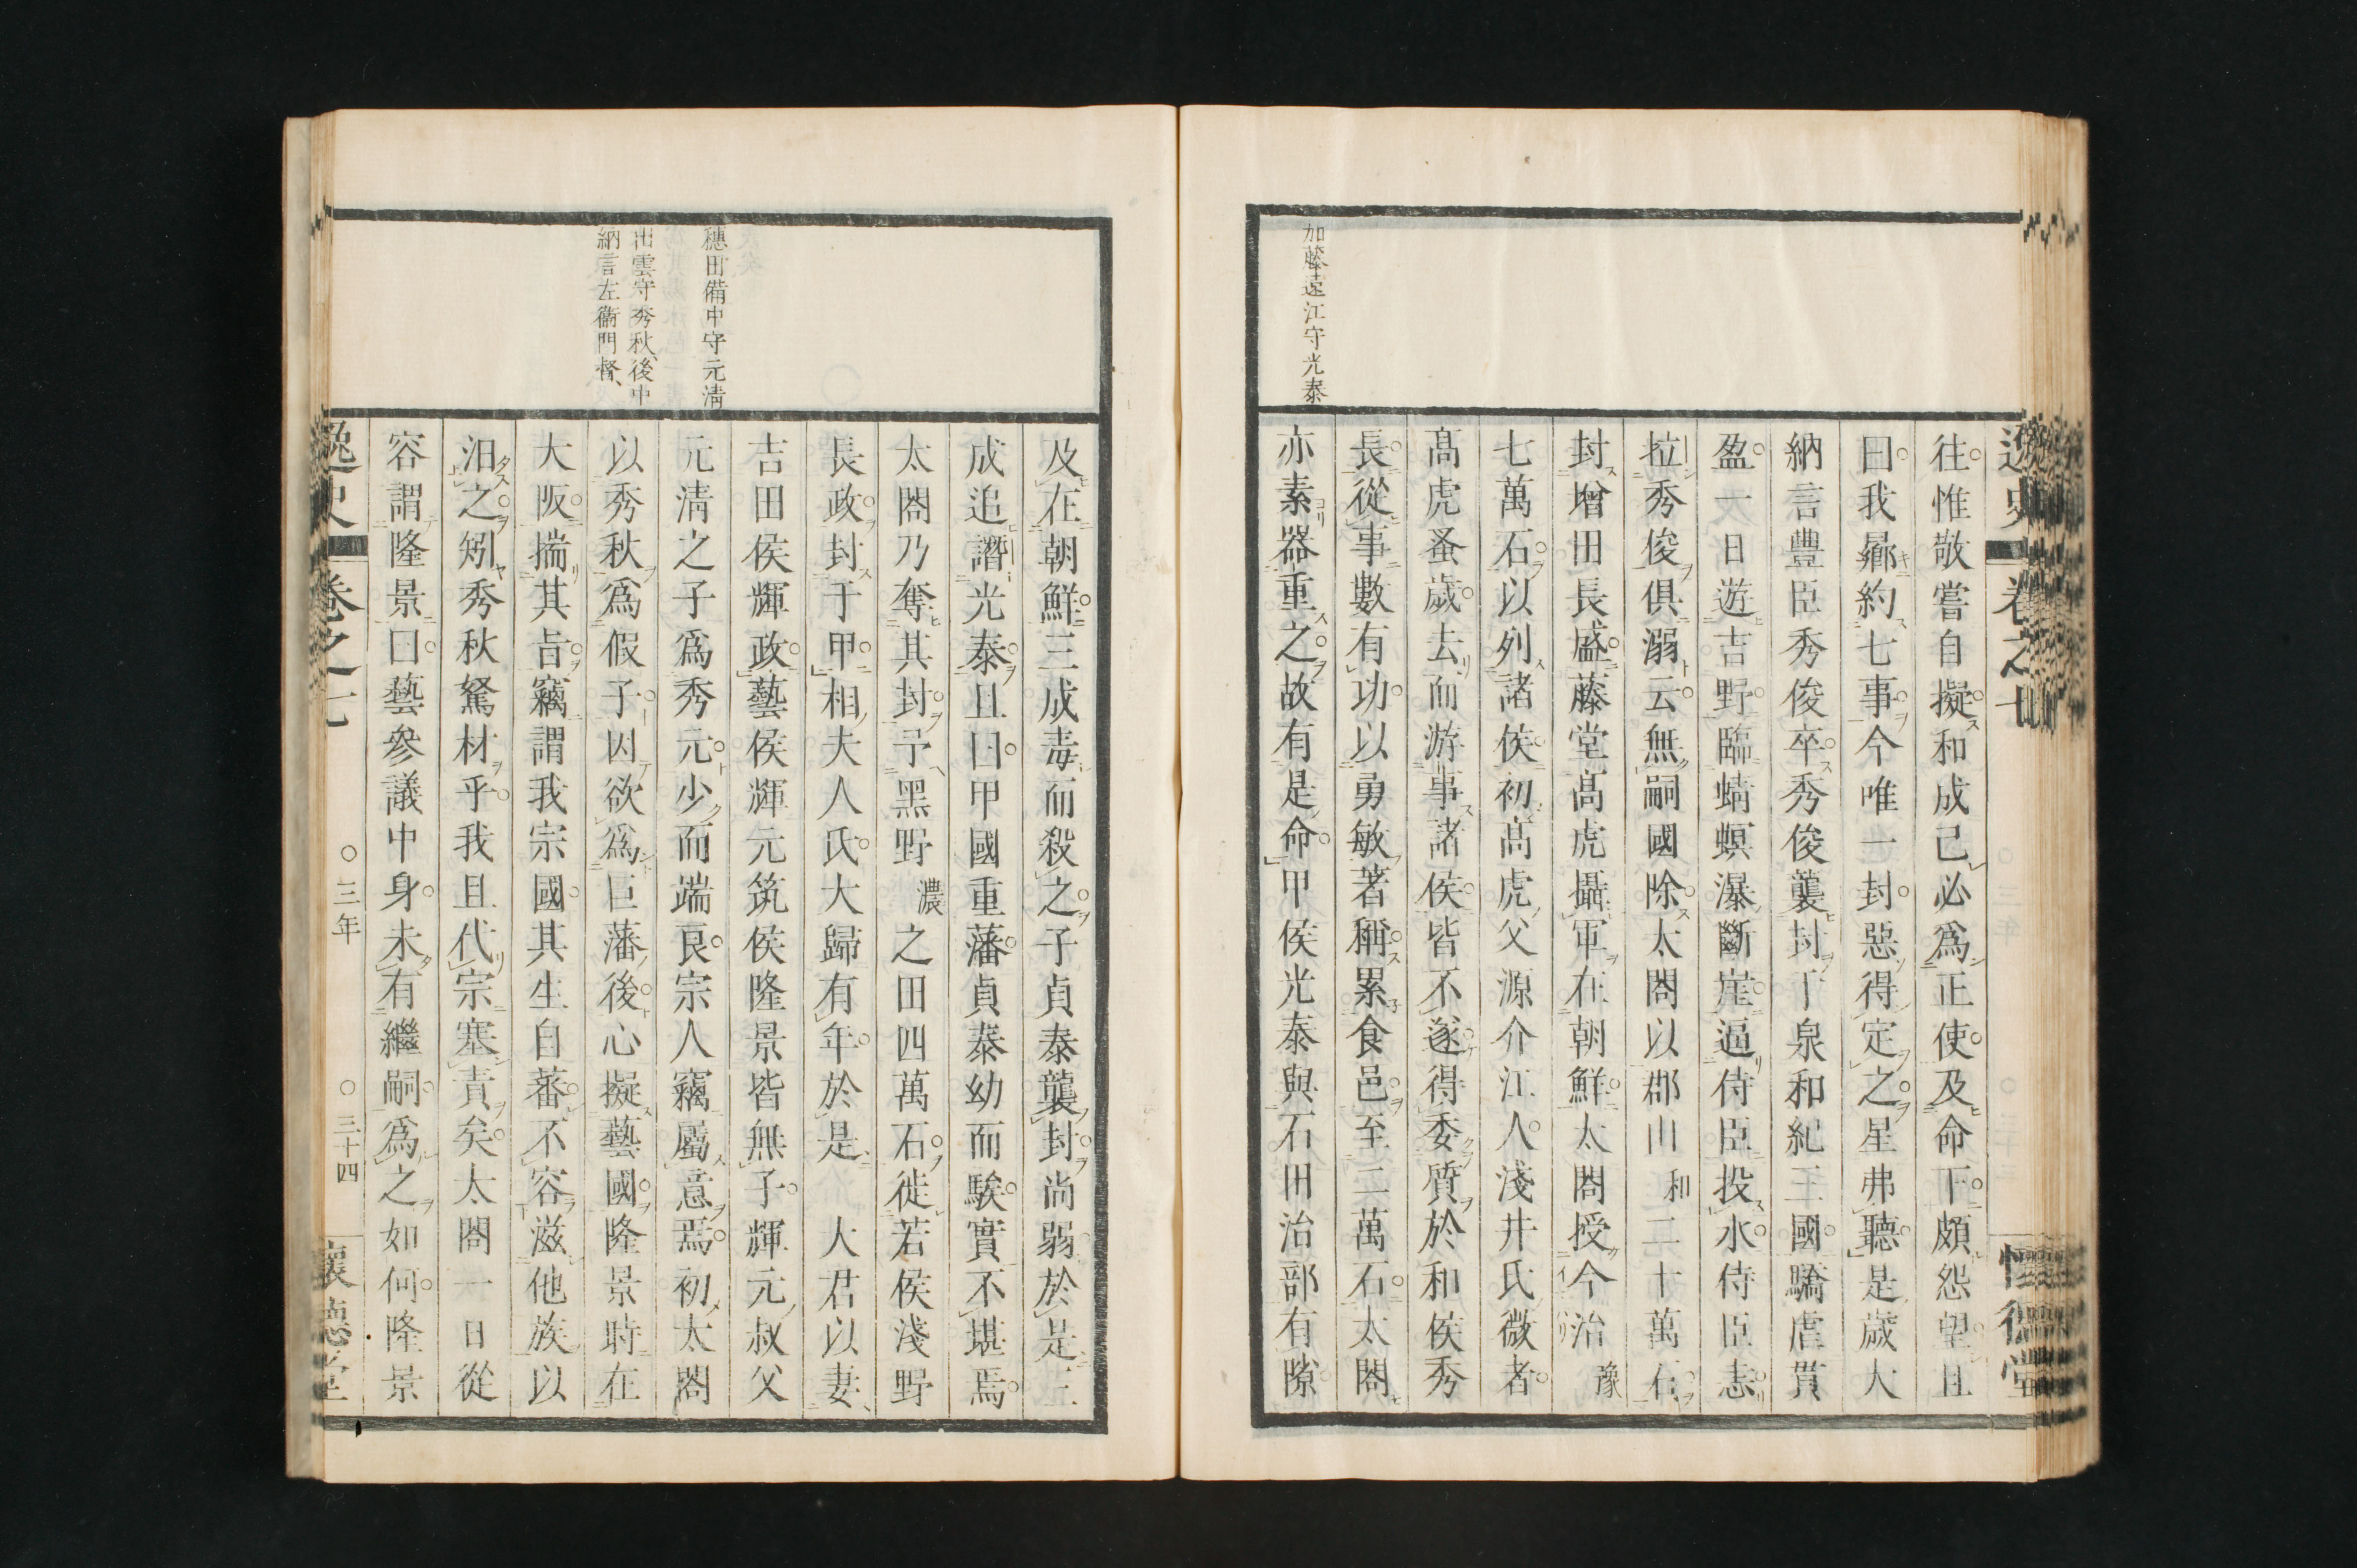 加藤遠江守光泰
往惟敬嘗自擬和成己必爲正使及命下頗怨望且
曰我齎約七事今唯一封惡得定之星弗聽是歲大
納言豐臣秀俊卒秀俊襲封于泉和紀三國驕虐貫
盈一日遊吉野臨蜻螟瀑斷崖逼侍臣投水侍臣志
拉秀俊俱溺云無嗣國除太閤以郡山和二十萬石
封增田長盛藤堂高虎攝軍在朝鮮太閤授今治豫
七萬石以列諸侯初高虎父源介江人淺井氏微者
高虎蚤歲去而游事諸侯皆不遂得委質於和侯秀
長從事數有功以勇敏著稱累食邑至二萬石太閤
亦素器重之故有是命甲侯光泰與石田治部有隙
穗田備中守元清
出雲守秀秋、後中
納言左衞門督、
及在朝鮮三成毒而殺之子貞泰襲封尚弱於是三
成追譖光泰且曰甲國重藩貞泰幼而騃實不堪焉
太閤乃奪其封予黑野濃之田四萬石徙若侯淺野
長政封于甲相夫人氏大歸有年於是 大君以妻
吉田侯輝政藝侯輝元筑侯隆景皆無子輝元叔父
元清之子爲秀元少而端良宗人竊屬意焉初太閤
以秀秋爲假子因欲爲巨藩後心擬藝國隆景時在
大阪揣其旨竊謂我宗國其生自蕃不容滋他族以
汨之矧秀秋駑材乎我且代宗塞責矣太閤一日從
容謂隆景曰藝參議中身未有繼嗣爲之如何隆景
逸史 卷之七 〇三年 〇三十四 懷德堂